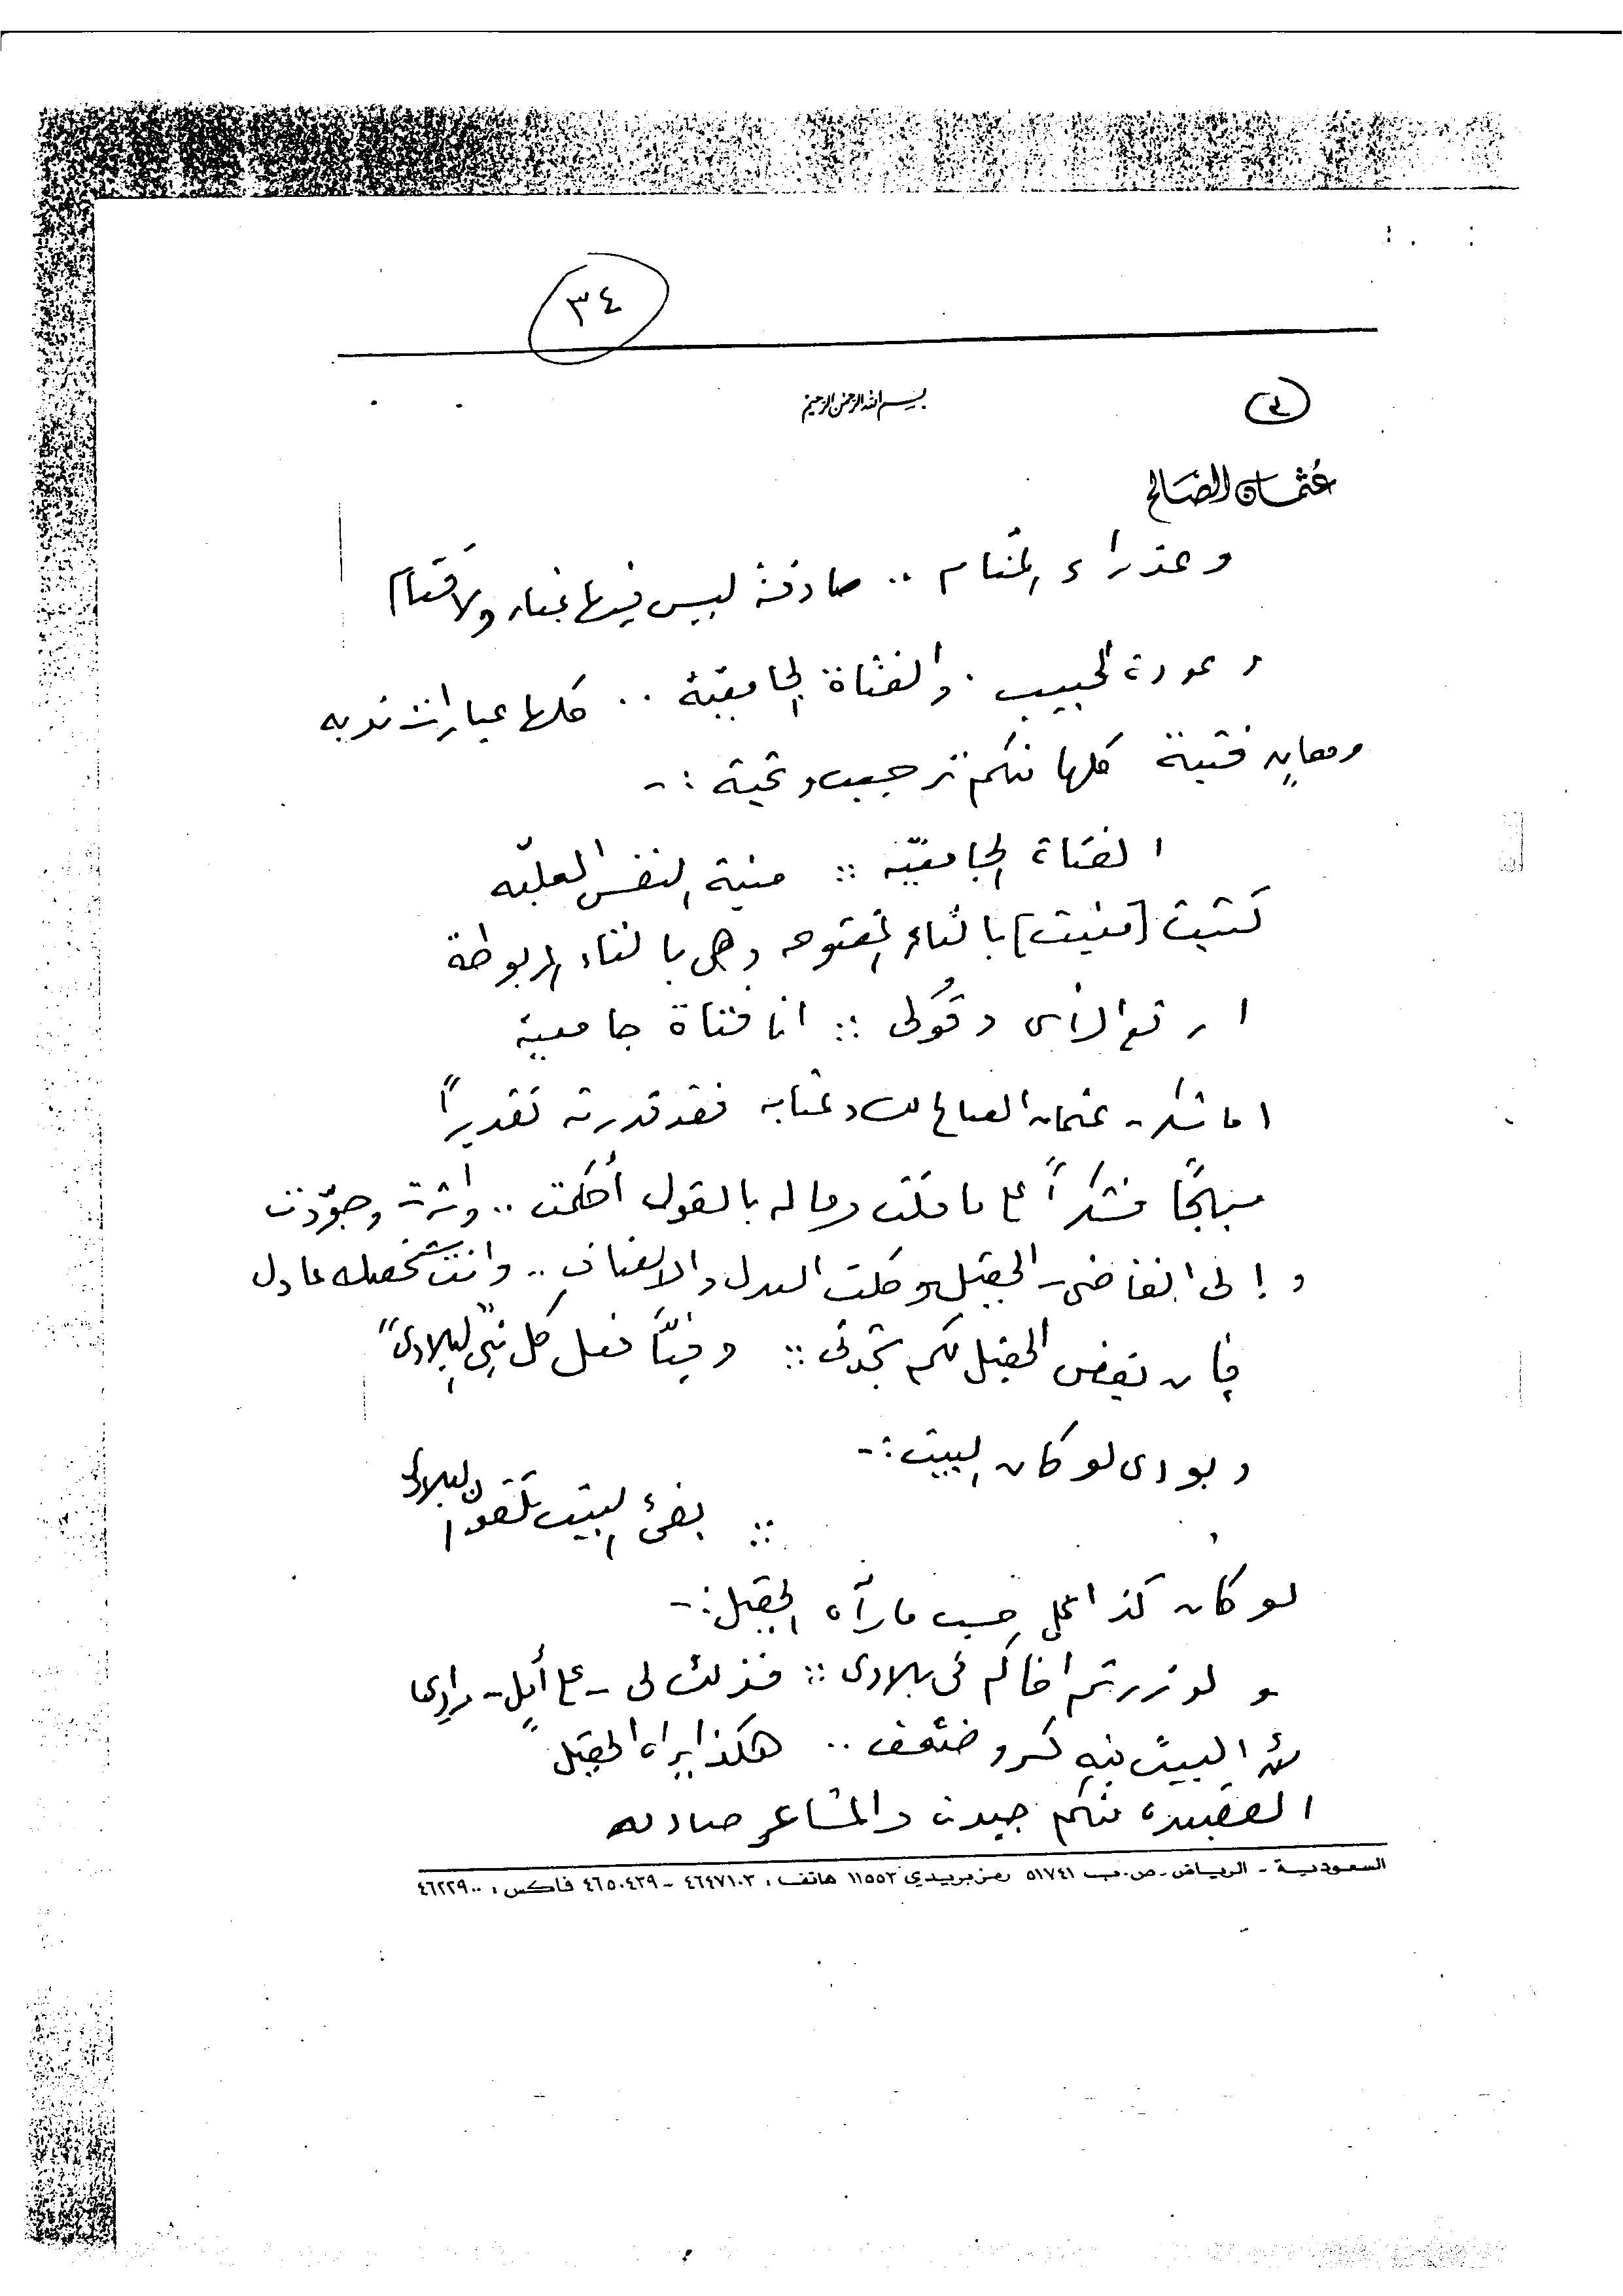 ٣٤
بسم الله الرحمن الرحيم
عثمان الصالح
وعذراء المنام .. صادقة ليس فيها غبار ولا قتام
وعودة الحبيب . والفتاة الجامعية .. كلها عبارات نديه
ومعانٍ فتية كلها منكم ترحيب وتحية :-
الفتاة الجامعيّه :: منية النفس العليّه
كتبت [منيت] بالتاء المفتوحه وهي بالتاء المربوطة
ارفع الرأس وقولي :: انا فتاة جامعية
اما شكر عثمان الصالح لك وعتابه فقد قدرته تقديراً
فشكراً على ما قلت وما له بالقول أحكمت .. واثرت وجوّدت
والى القاضي الحقيل وكلت العدل والانصاف .. وانت شخصك عادل
فان بعض الحقيل لكم تجدني :: وفيّاً فعل كل بني البلاد"
وبودي لو كان البيت :-
:: بفئ البيت تلقون البلاد
لو كان كذا على حسب ما رآه الحقيل :-
ولو زرتم اخاكم في بلادي :: فذلك لي - على أملٍ - مرادي
لأن البيت فيه كسر وضعف .. هكذا يراه الحقيل
القصيده منكم جيدة والمشاعر صادقه
السعودية - الرياض - ص.ب ٥١٧٤١ رمز بريدي ١١٥٥٣ هاتف : ٤٦٤٧١٠٣ - ٤٦٥٠٤٣٩ فاكس : ٤٦٢٢٩٠٠